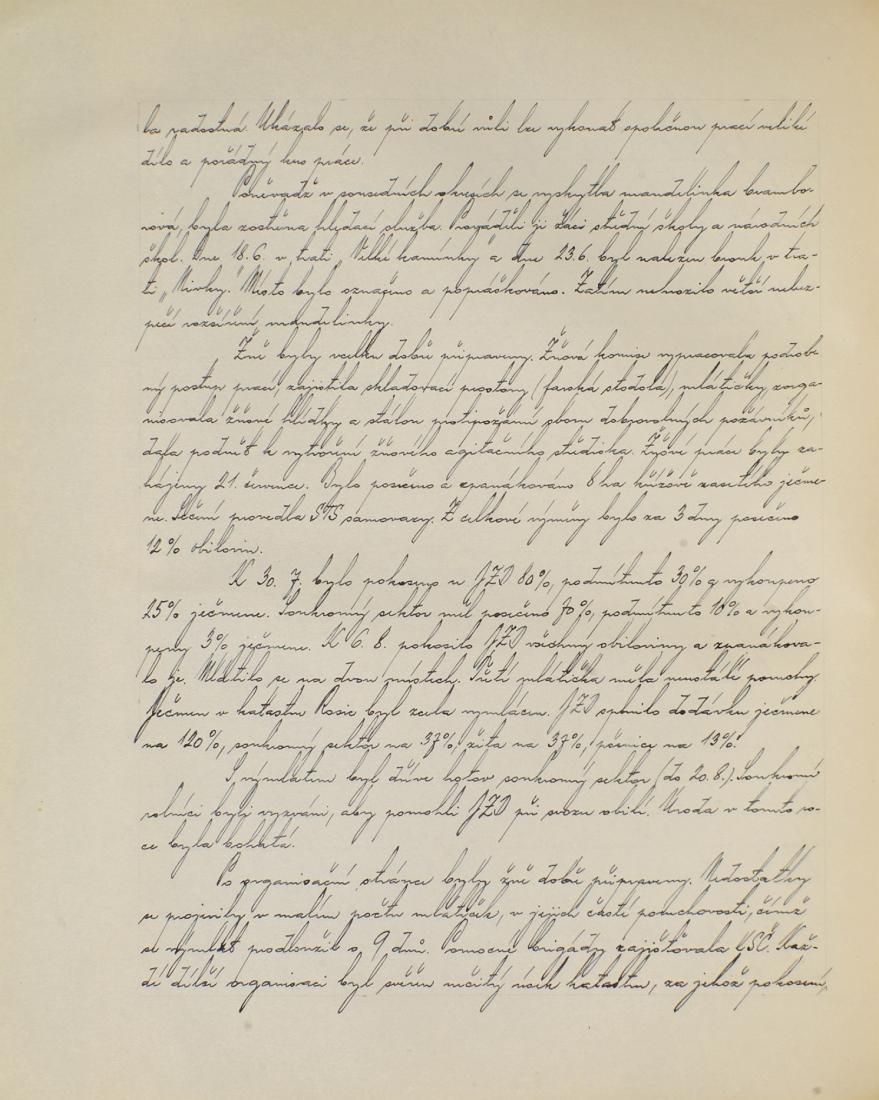 la radostná. Ukázalo se, že při dobré vůli lze vykonat společnou prací veliké
dílo a pořádný kus práce.
Poněvadž v sousedních okresích se vyskytla mandelinka brambo-
rová, byla zostřena hledací služba. Prováděli ji žáci střední školy a národních
škol. Dne 18.6. v trati „Velké kamínky" a dne 23.6. byl nalezen brouk v tra-
ti „Nivky." Místo bylo označeno a popráškováno. Zatím nehrozilo větší nebez-
pečí rozšíření mandelinky.
Žně byly vcelku dobře připraveny. Žňová komise vypracovala podrob-
ný postup prací, zajistila skladovací prostory (farská stodola), mlátičky, zorga-
nisovala žňové hlídky a stálou protipožární sbor dobrovolných požárníků,
dala podnět k vytvoření žňového agitačního střediska. Žňové práce byly za-
hájeny 21. července. Bylo posečeno a zpanákováno 8 ha křížově zasetého ječme-
ne. Sečení provedla STS samovazy. Z celkové výměry bylo za 3 dny posečeno
12% obilovin.
K 30. 7. bylo pokoseno u JZD 80%, podmítnuto 30% a vykoupeno
25% ječmene. Soukromý sektor měl posečeno 70%, podmítnuto 10% a vykou-
peny 3% ječmene. K 6. 8. pokosilo JZD všechny obiloviny a zpanákova-
lo je. Mlátilo se na dvou místech. Třetí mlátička měla neustálé poruchy.
Ječmen v katastru Rosic byl zcela vymlácen. JZD splnilo dodávku ječmene
na 120%, soukromý sektor na 37%, žita na 37%, pšenice na 13%.
S výmlatem byl dříve hotov soukromý sektor (do 20.8.). Soukromí
rolníci byli vyzváni, aby pomohli JZD při svozu obilí. Úroda v tomto ro-
ce byla bohatá.
Po organisační stránce byly žně dobře připraveny. Nedostatky
se projevily v malém počtu mlátiček, v jejich časté poruchovosti, čímž
se výmlat prodloužil o 9 dnů. Pomocné brigády zajišťovala KSČ. Kaž-
dé dílčí organisaci byl svěřen určitý úsek katastru, za jehož pokosení,